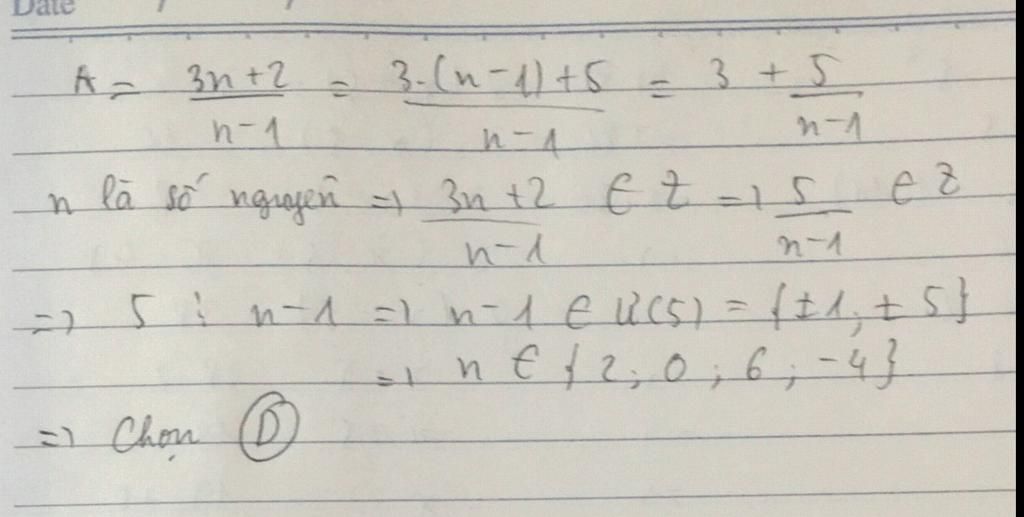 Date / /
A = (3n+2)/(n-1) = (3.(n-1)+5)/(n-1) = 3 + 5/(n-1)
n là số nguyên => (3n+2)/(n-1) ∈ Z => 5/(n-1) ∈ Z
=> 5 ⋮ n-1 => n-1 ∈ Ư(5) = {±1; ±5}
=> n ∈ {2; 0; 6; -4}
=> Chọn D